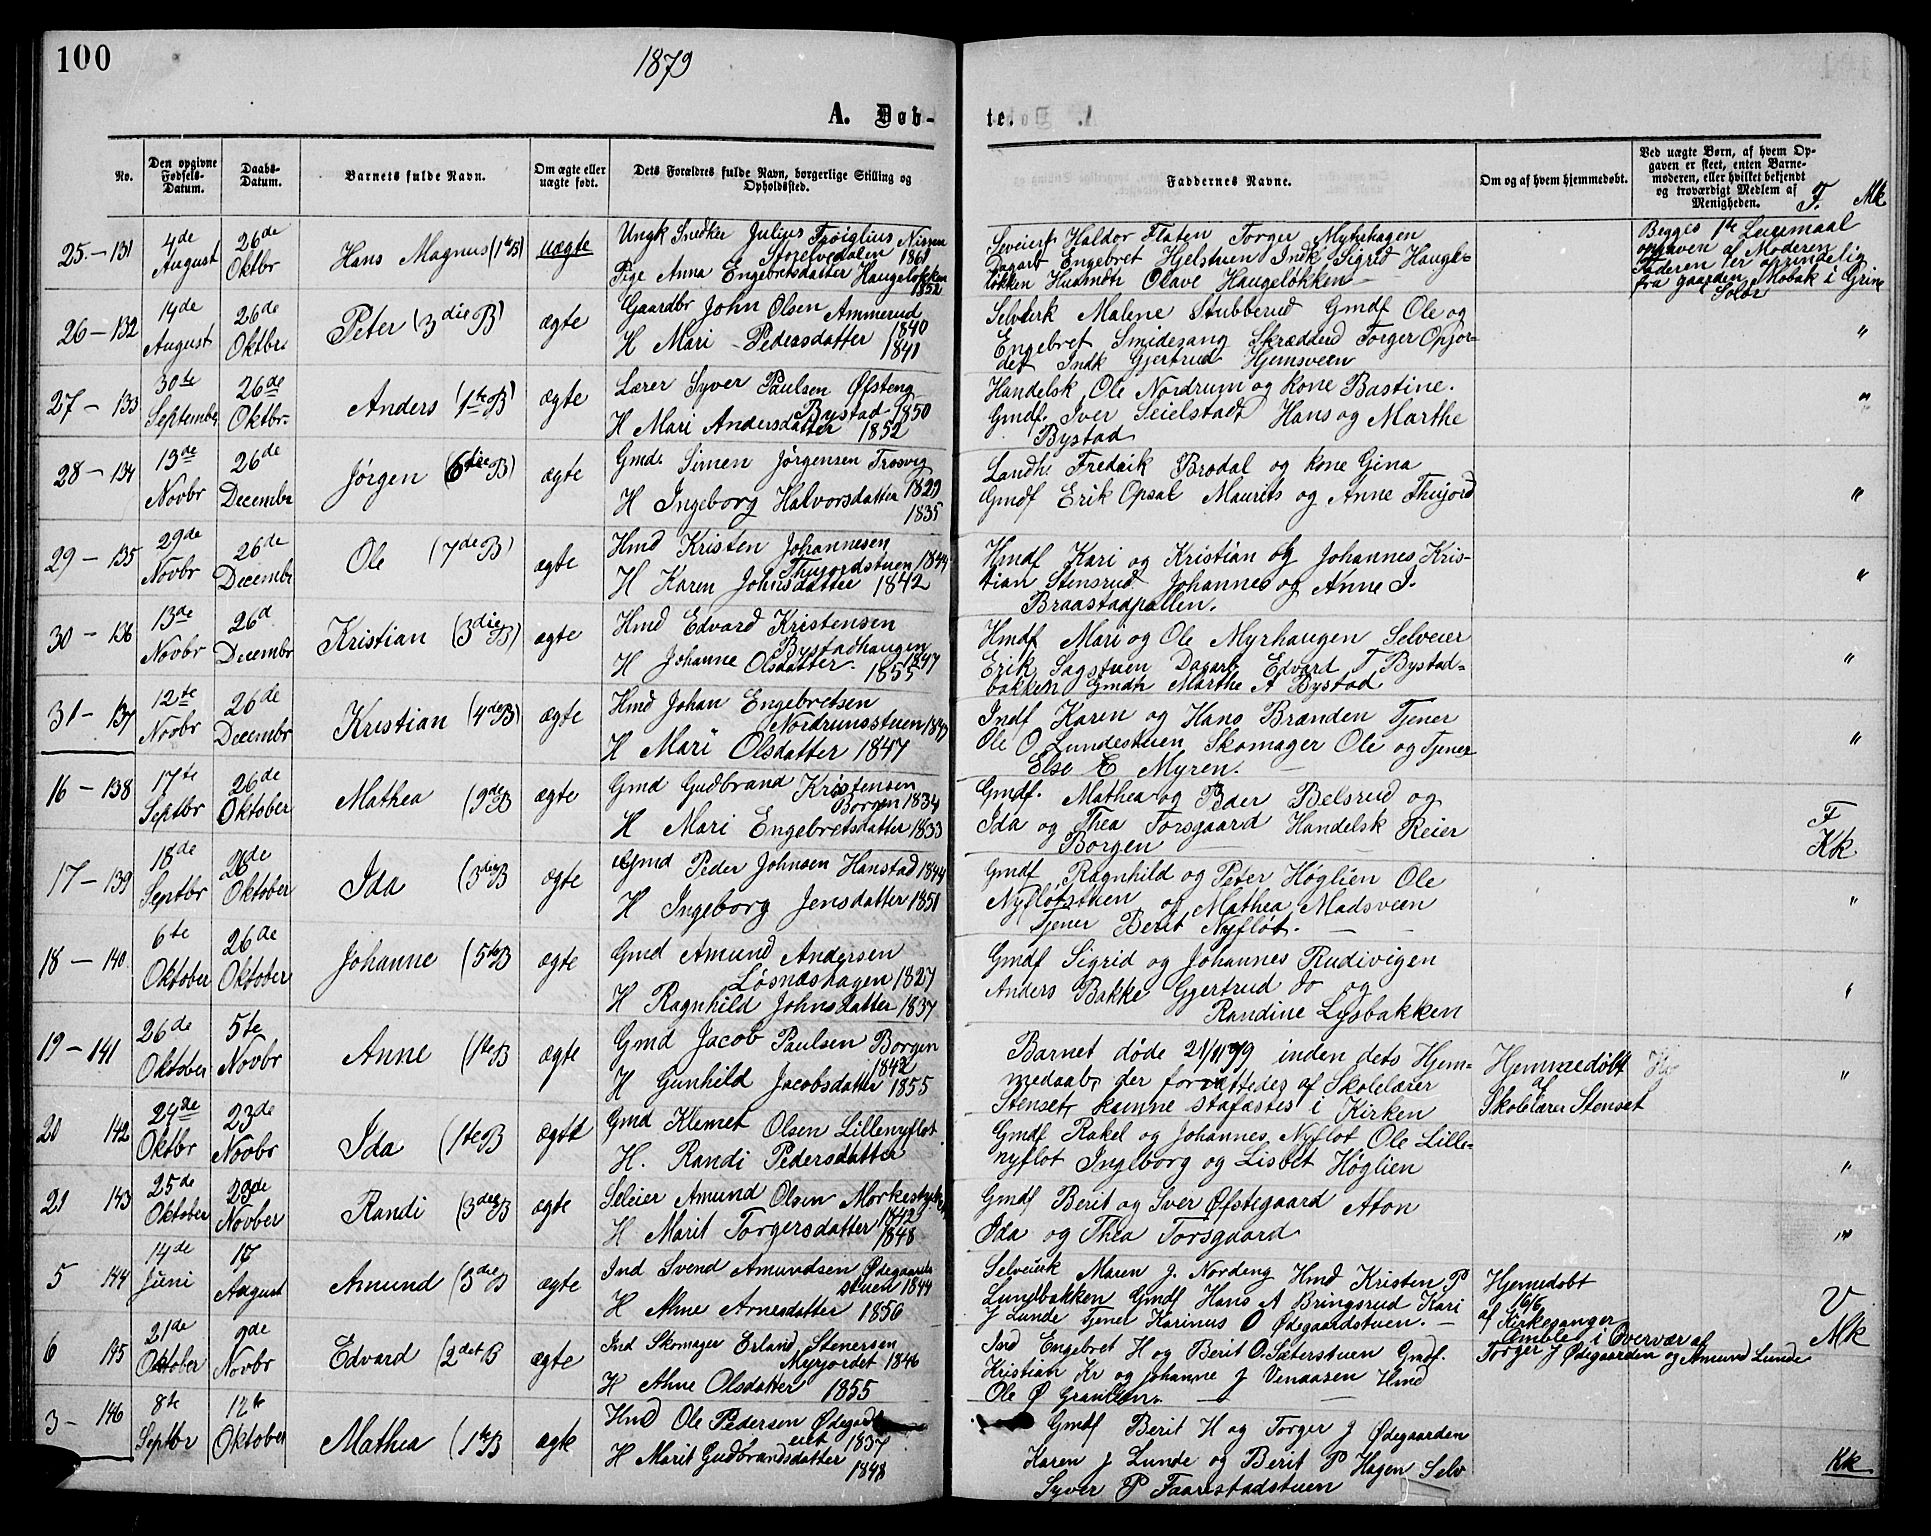 100
1879
A. Døb-
te.
No.
Den opgivne Fødsels-Datum.
Daabs-Datum.
Barnets fulde Navn.
Om ægte eller uægte født.
Dets Forældres fulde Navn, borgerlige Stilling og Opholdssted.
Faddernes Navne.
Om og af hvem hjemmedøbt.
Ved uægte Børn, af hvem Opgaven er skeet, enten Barnemoderen, eller hvilket bekjendt og troværdigt Medlem af Menigheden.
F. Mk
25 - 131 4de August 26de Oktbr Hans Magnus (1ste B) uægte
Ungk Snedker Julius Nissen
Storelvedalen 1861
Pige Anna Engebretsdatter Haugeløkken
1852
Selveierf Haldor Flaten Torger Myhrhagen
Dagarb Engebret Hjelstuen Indk Sigrid Hauge-
løkken Husmdtr Olave Haugeløkken
Begges 1ste Leiermaal
opgaven af Moderen
Faderen er oprindelig
fra gaarden Skobak i Grue
Solør
26 - 132 14de August 26de Oktbr. Peter (3die B) ægte
Gaardbr John Olsen Ammerud
1840
H Mari Pedersdatter 1841
Selveierk Malene Stubberud Gmdf Ole og
Engebret Smidesang Skrædder Torger Opjor-
det Indk Gjertrud Hjemsveen
"
27 - 133 30te Septembr 26de Oktbr. Anders (1ste B) ægte
Lærer Syver Paulsen Øfsteng
Bystad 1850
H Mari Andersdatter 1852
Handelsk Ole Nordrum og kone Bastine.
Gmdf. Iver Seielstad Hans og Marthe
Bystad
"
28 - 134 13de Novbr 26de Decembr Jørgen (6die B) ægte
Gmd. Simen Jørgensen Trosvig
1829
H Ingeborg Halvorsdatter
1835
Landh Fredrik Brodal og kone Gina
Gmdf Erik Opsal Maurits og Anne Thujord
"
29 - 135 29de Novbr 26de Decembr Ole (7de B) ægte
Hmd Kristen Johannesen
Thujordstuen 1844
H Karen Johnsdatter 1842
Hmdf Kari og Kristian og Johannes Kris-
tian Stensrud Johannes og Anne J.
Braastadpallen.
"
30 - 136 13de Novbr 26d Decembr Kristian (3die B) ægte
Hmd Edvard Kristensen
Bystadhaugen
1847
H Johanne Olsdatter. 1855
Hmdf Mari og Ole Myrhaugen Selveier
Erik Sagstuen Dagarb Edvart T Bystad-
bakken Gmdtr Marthe A Bystad
"
31 - 137 12te Novbr 26de Decembr Kristian (4de B) ægte
Hmd Johan Engebretsen
Nordrumsstuen
H Mari Olsdatter 1847
Indf Karen og Hans Brænden Tjener
Ole O Lundestuen Skomager Ole og Tjener
Else E Myren.
"
16 - 138 17te Septbr 26de Oktober Mathea (9de B ægte
Gmd Gudbrand Kristensen
Borgen 1834
H Mari Engebretsdatter 1833
Gmdf. Mathea og Peder Belsrud og
Ida og Thea Forsgaard Handelsk Reier
Borgen
F
Kk
17 - 139 18de Septbr 26de Oktober Ida (3die B ægte
Gmd Peder Johnsen Hanstad 1844
H Ingeborg Jensdatter 1851
Gmdf Ragnhild og Peter Høglien Ole
Nyflotstuen og Mathea Madsveen
Tjener Berit Nyfløt.
"
18 - 140 6te Oktober 26de Oktober Johanne (5te B ægte
Gmd Amund Andersen
Løsnæshagen 1827
H Ragnhild Johnsdatter 1837
Gmdf Sigrid og Johannes Rudivigen
Anders Bakke Gjertrud do og
Randine Lysbakken
"
19 - 141 26de Oktober 5te Novbr Anne (1ste B ægte
Gmd Jacob Paulsen Borgen
1842
H Gunhild Jacobsdatter 1855
Barnet døde 21/11 79 inden dets Hjem-
medaab, der forrettedes af Skolelærer
Stenset, kunne stafæstes i Kirken
Hjemmedøbt
af
Skolelærer Stenset
"
20 142 24de Oktbr 23de Novbr Ida (1ste B ægte
Gmd Klemet Olsen Lillenyflot
H. Randi Pedersdatter
Gmdf Rakel og Johannes Nyflot Ole Lille-
nyflot Ingeborg og Lisbet Høglien
"
21 143 25de Oktober 23de Novber Randi (3die B ægte
Seleier Amund Olsen
1842
H Marit Torgersdatter 1848
Gmdf Berit og Iver Øfstegaard Aton
Ida og Thea Forsgaard
"
5 144 14de Juni 17 August Amund (3die B ægte
Ind Svend Amundsen Ødegaards
stuen 1844
H Ahne Arnesdatter 1850
Selveierk Maren J. Nordeng Hmd Kristen P
Lundbakken Gmdf Hans A Bringsrud Kari
J Lunde Tjener Karinus O Ødegaardstuen.
Hjemedøbt
16/6
af Kirkesanger
Emble i Overvær af
Torger J Ødegaarden og Amund Lunde
V
Mk
6 145 21de Oktober 9de Novbr Edvard (2det B ægte
Ind Skomager Erland Stenersen
Myrjordet 1846
H Ahne Olsdatter 1855
Ind Engebret H og Berit O. Sæterstuen Gmdf.
Kristian Kr og Johanne J Venaasen Hmd
Ole Ø
3 - 146 8te Septbr 12te Oktober Mathea (1ste B ægte
Hmd Ole Pedersen Ødegaards
eiet 1837
H Marit Gudbrandsdatter
1848
Gmdf Berit H og Torger J Ødegaarden
Karen J Lunde og Berit P Hagen Selv
Syver P Faarestadstuen
Kk